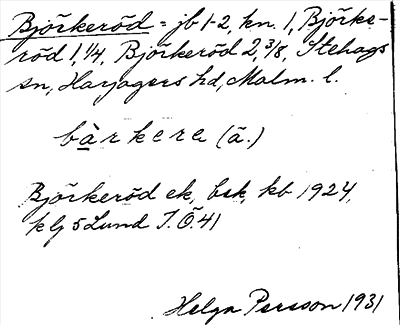 Björkeröd = jb 1-2, kn. 1, Björke-
röd 1, 1/4, Björkeröd 2, 3/8, Stehags
sn, Harjagers hd, Malm. l.
bàrkere (ä.)
Björkeröd ek, bsk, kb 1924,
klj 5 Lund I.Ö.41
Helga Persson 1931